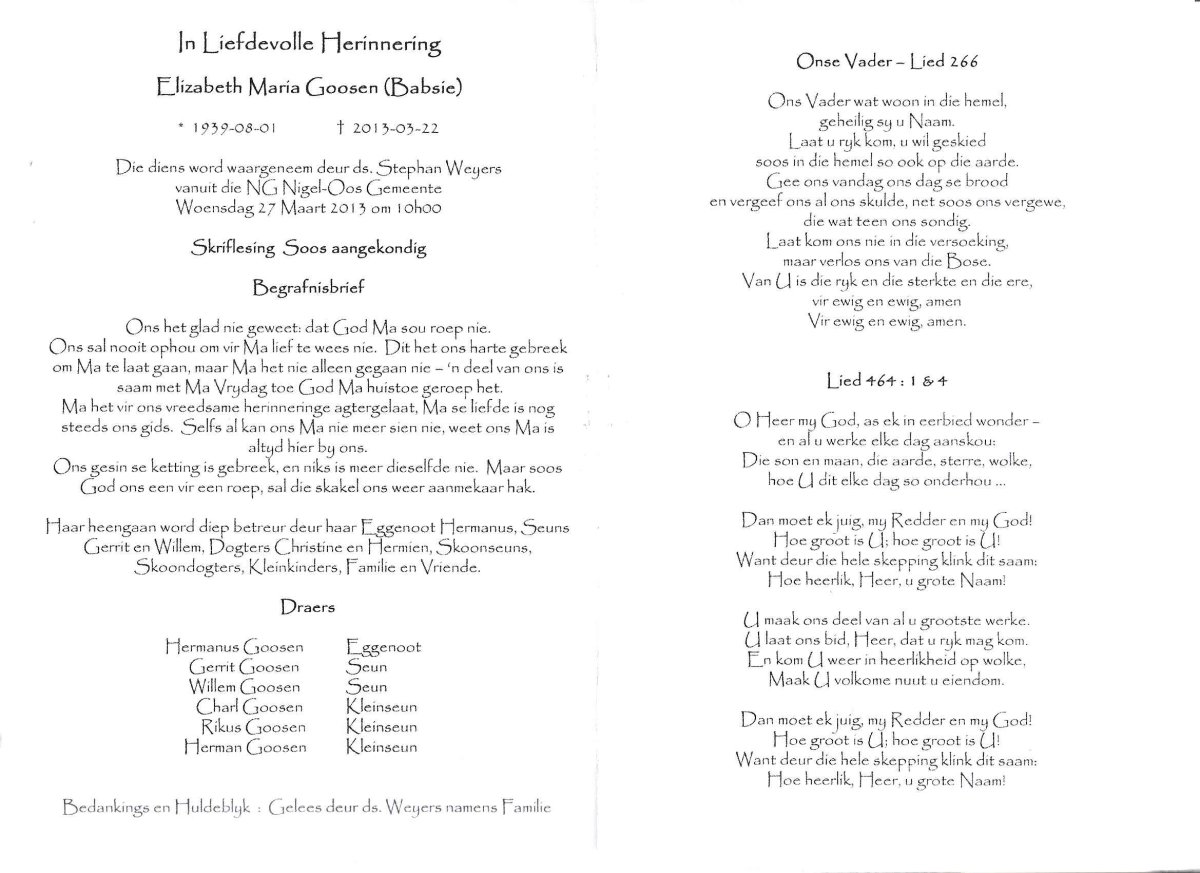 In Liefdevolle Herinnering
Elizabeth Maria Goosen (Babsie)
* 1939-08-01 † 2013-03-22
Die diens word waargeneem deur ds. Stephan Weyers
vanuit die NG Nigel-Oos Gemeente
Woensdag 27 Maart 2013 om 10h00
Skriflesing Soos aangekondig
Begrafnisbrief
Ons het glad nie geweet: dat God Ma sou roep nie.
Ons sal nooit ophou om vir Ma lief te wees nie. Dit het ons harte gebreek
om Ma te laat gaan, maar Ma het nie alleen gegaan nie – 'n deel van ons is
saam met Ma Vrydag toe God Ma huistoe geroep het.
Ma het vir ons vreedsame herinneringe agtergelaat, Ma se liefde is nog
steeds ons gids. Selfs al kan ons Ma nie meer sien nie, weet ons Ma is
altyd hier by ons.
Ons gesin se ketting is gebreek, en niks is meer dieselfde nie. Maar soos
God ons een vir een roep, sal die skakel ons weer aanmekaar hak.
Haar heengaan word diep betreur deur haar Eggenoot Hermanus, Seuns
Gerrit en Willem, Dogters Christine en Hermien, Skoonseuns,
Skoondogters, Kleinkinders, Familie en Vriende.
Draers
Hermanus Goosen Eggenoot
Gerrit Goosen Seun
Willem Goosen Seun
Charl Goosen Kleinseun
Rikus Goosen Kleinseun
Herman Goosen Kleinseun
Bedankings en Huldeblyk : Gelees deur ds. Weyers namens Familie
Onse Vader – Lied 266
Ons Vader wat woon in die hemel,
geheilig sy u Naam.
Laat u ryk kom, u wil geskied
soos in die hemel so ook op die aarde.
Gee ons vandag ons dag se brood
en vergeef ons al ons skulde, net soos ons vergewe,
die wat teen ons sondig.
Laat kom ons nie in die versoeking,
maar verlos ons van die Bose.
Van U is die ryk en die sterkte en die ere,
vir ewig en ewig, amen
Vir ewig en ewig, amen.
Lied 464 : 1 & 4
O Heer my God, as ek in eerbied wonder –
en al u werke elke dag aanskou:
Die son en maan, die aarde, sterre, wolke,
hoe U dit elke dag so onderhou ...
Dan moet ek juig, my Redder en my God!
Hoe groot is U; hoe groot is U!
Want deur die hele skepping klink dit saam:
Hoe heerlik, Heer, u grote Naam!
U maak ons deel van al u grootste werke.
U laat ons bid, Heer, dat u ryk mag kom.
En kom U weer in heerlikheid op wolke,
Maak U volkome nuut u eiendom.
Dan moet ek juig, my Redder en my God!
Hoe groot is U; hoe groot is U!
Want deur die hele skepping klink dit saam:
Hoe heerlik, Heer, u grote Naam!